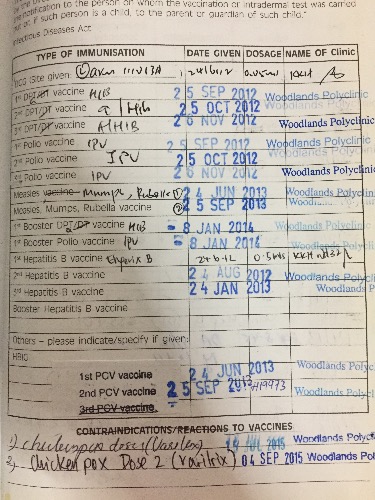 notification to the person on whom the vaccination or intradermal test was carried
out or, if such person is a child, to the parent or guardian of such child."
Infectious Diseases Act
TYPE OF IMMUNISATION DATE GIVEN DOSAGE NAME OF Clinic
BCG (Site given 24/6/12 0.05ml KKH
1st DPT/DT vaccine HIB 25 SEP 2012 Woodlands Polyclinic
2nd DPT/DT vaccine Hib 25 OCT 2012
3rd DPT/DT vaccine HIB 26 NOV 2012 Woodlands Polyclinic
1st Polio vaccine IPV 25 SEP 2012 Woodlands Polyclinic
2nd Polio vaccine IPV 25 OCT 2012
3rd Polio vaccine IPV 26 NOV 2012 Woodlands Polyclinic
Measles vaccine Mumps, Rubella ① 24 JUN 2013 Woodlands Polyclinic
Measles, Mumps, Rubella vaccine ② 25 SEP 2013
1st Booster DPT/DT vaccine HIB 8 JAN 2014
1st Booster Polio vaccine IPV 8 JAN 2014
1st Hepatitis B vaccine Engerix B 24.6.12 0.5mls KKH
2nd Hepatitis B vaccine 24 AUG 2012 Woodlands Polyclinic
3rd Hepatitis B vaccine 24 JAN 2013 Woodlands P
Booster Hepatitis B vaccine
Others – please indicate/specify if given:
HBIG
1st PCV vaccine 24 JUN 2013 Woodlands Polycl
2nd PCV vaccine 25 SEP 2013 H19973
3rd PCV vaccine
CONTRAINDICATIONS/REACTIONS TO VACCINES
1) Chickenpox dose 1 (Varilrix) 2015 Woodlands Polycl
2) Chicken pox Dose 2 (varilrix) 04 SEP 2015 Woodlands Pol